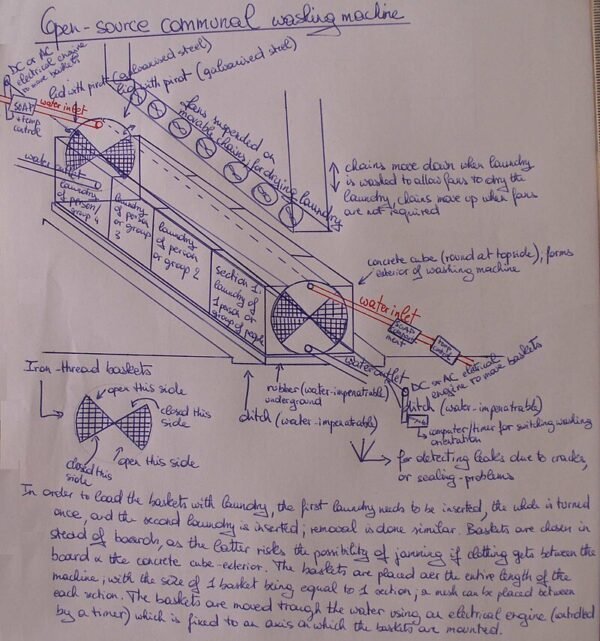 Open-source communal washing machine
DC or AC
electrical engine
to move baskets
lid with pivot (galvanised steel)
lid with pivot (galvanised steel)
SOAP
+ temp
control
water inlet
water outlet
fans suspended on
movable chains; for drying laundry
chains move down when laundry
is washed to allow fans to dry the
laundry, chains move up when fans
are not required
laundry
of person/
group 4
laundry
of person
or group
3
laundry
of person
or group 2
section 1:
laundry of
1 person or
group of people
concrete cube (round at topside), forms
exterior of washing machine
water inlet
SOAP
compart
ment
temp
control
water outlet
DC or AC electrical
engine to move baskets
Iron-thread baskets
open this side
closed this
side
closed this
side
open this side
rubber (water-impenatrable)
underground
ditch (water-impenatrable)
ditch (water-impenatrable)
computer/timer for switching washing
orientation
for detecting leaks due to cracks,
or sealing-problems
In order to load the baskets with laundry, the first laundry needs to be inserted, the whole is turned
once, and the second laundry is inserted; removal is done similar. Baskets are chosen in
stead of boards, as the latter risks the possibility of jamming if clothing gets between the
board & the concrete cube-exterior. The baskets are placed over the entire length of the
machine; with the size of 1 basket being equal to 1 section; a mesh can be placed between
each section. The baskets are moved trough the water using an electrical engine (controlled
by a timer) which is fixed to an axis on which the baskets are mounted.